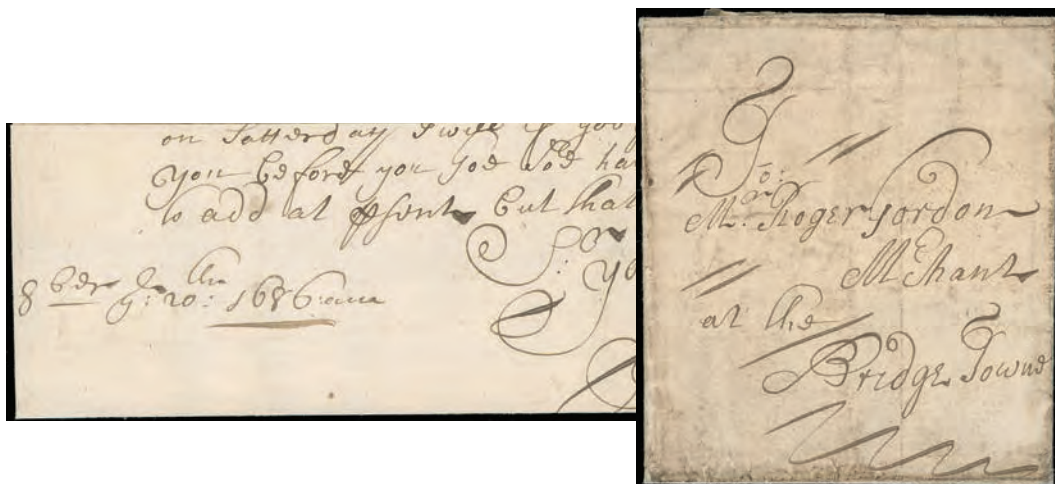 on Satterday I will if you
you before you Goe I: ha
to add at psent But that
Sr:
yo
8ber ye: 20:th 1686
To:
Mr: Roger Gordon
Mchant
at the
Bridge Towne